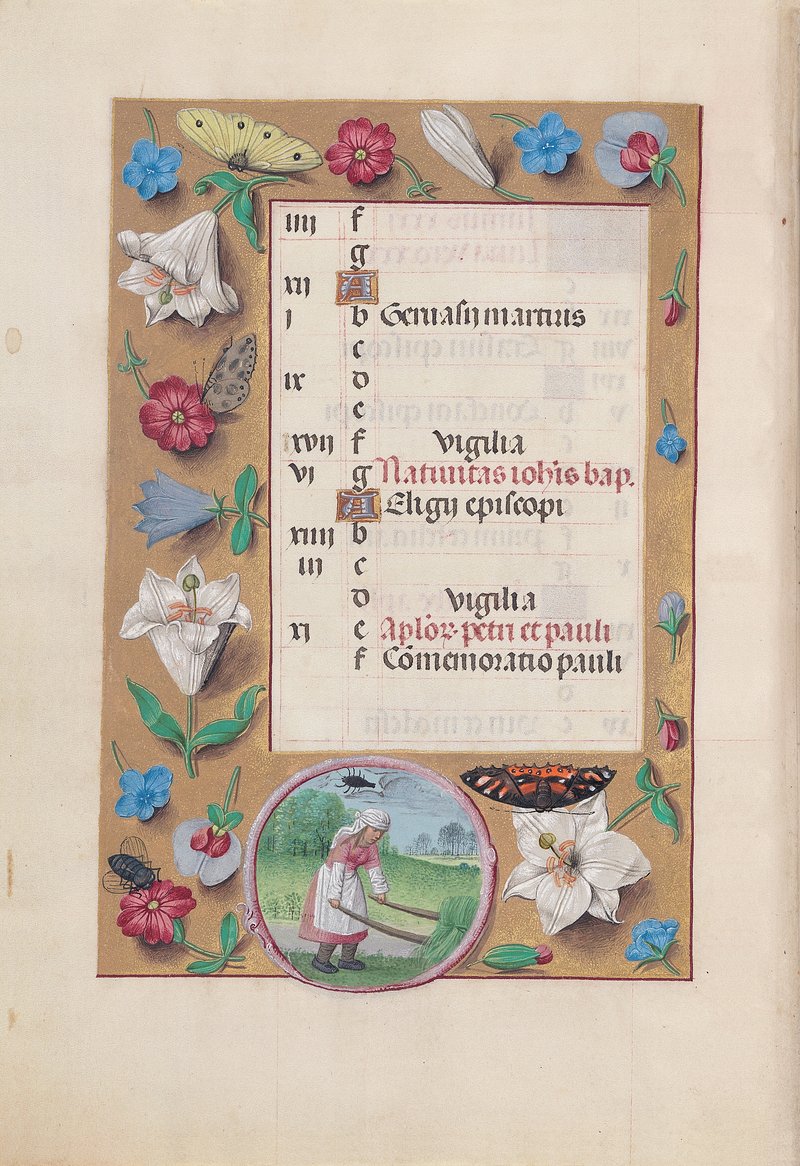 iiij f
g
xij A
j b Geruasij martiris
c
ix d
e
xvij f vigilia
vj g Natiuitas ioh'is bap.
A Eligij episcopi
xiiij b
iij c
d vigilia
xj e Ap'lor. petri et pauli
f Cōmemoratio pauli